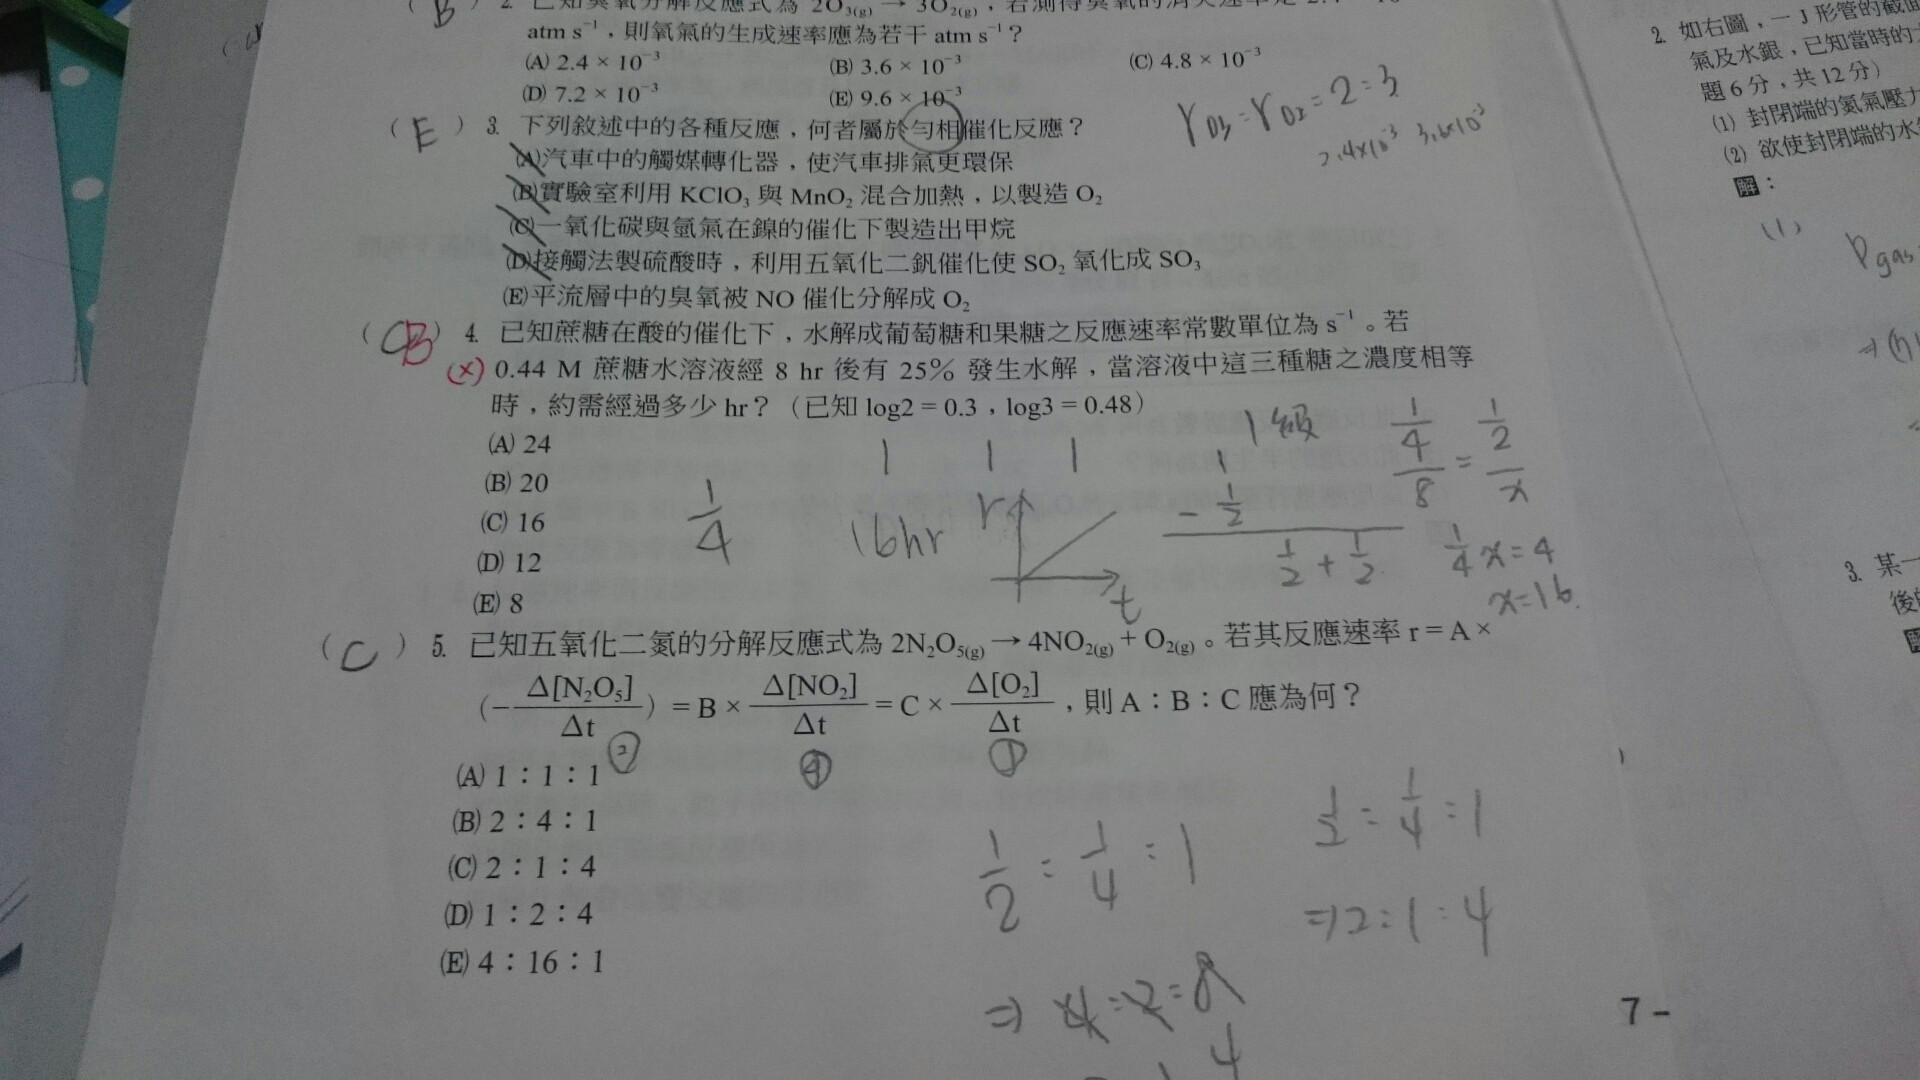 ( B ) 2. 已知臭氧分解反應式為 2O₃(g) → 3O₂(g)，若測得臭氧的消失速率是 2.4 × 10
atm s⁻¹，則氧氣的生成速率應為若干 atm s⁻¹？
(A) 2.4 × 10⁻³ (B) 3.6 × 10⁻³ (C) 4.8 × 10⁻³
(D) 7.2 × 10⁻³ (E) 9.6 × 10⁻³
( E ) 3. 下列敘述中的各種反應，何者屬於勻相催化反應？
(A)汽車中的觸媒轉化器，使汽車排氣更環保
(B)實驗室利用 KClO₃ 與 MnO₂ 混合加熱，以製造 O₂
(C)一氧化碳與氫氣在鎳的催化下製造出甲烷
(D)接觸法製硫酸時，利用五氧化二釩催化使 SO₂ 氧化成 SO₃
(E)平流層中的臭氧被 NO 催化分解成 O₂
γO₃ : γO₂ = 2 : 3
2.4×10⁻³ 3.6×10⁻³
( C B ) 4. 已知蔗糖在酸的催化下，水解成葡萄糖和果糖之反應速率常數單位為 s⁻¹。若
(×) 0.44 M 蔗糖水溶液經 8 hr 後有 25% 發生水解，當溶液中這三種糖之濃度相等
時，約需經過多少 hr？（已知 log2 = 0.3，log3 = 0.48）
(A) 24
(B) 20
(C) 16
(D) 12
(E) 8
1 1 1
1/4
16hr
r
t
1級
1
- 1/2
1/2 + 1/2
1/4 / 8 = 1/2 / x
1/4 x = 4
x = 16.
( C ) 5. 已知五氧化二氮的分解反應式為 2N₂O₅(g) → 4NO₂(g) + O₂(g)。若其反應速率 r = A ×
(− Δ[N₂O₅]/Δt ) = B × Δ[NO₂]/Δt = C × Δ[O₂]/Δt，則 A：B：C 應為何？
② ④ ①
(A) 1：1：1
(B) 2：4：1
(C) 2：1：4
(D) 1：2：4
(E) 4：16：1
1/2 : 1/4 : 1
⇒ 4 : 2 : 8
4
1/2 : 1/4 : 1
⇒ 2 : 1 : 4
7 −
2. 如右圖，一 J 形管的截面
氣及水銀，已知當時的
題 6 分，共 12 分）
(1) 封閉端的氦氣壓力
(2) 欲使封閉端的水
解：
(1)
Pgas
3. 某一
後